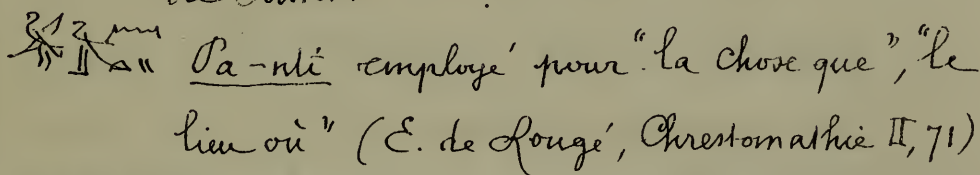 Pa-nti employé pour "la chose que", "le
lieu où" (E. de Rougé, Chrestomathie II, 71)